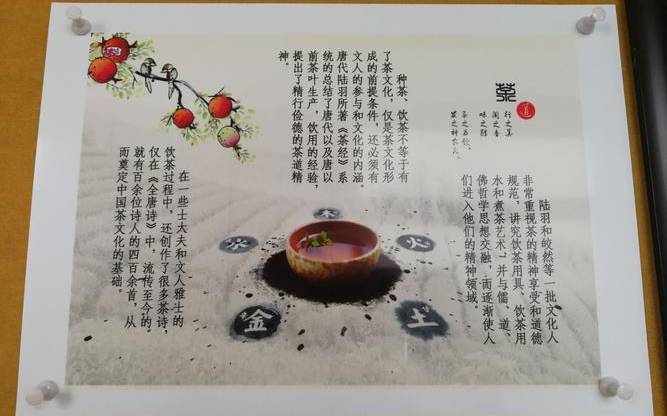 茶
道
种茶、饮茶不等于有
了茶文化，仅是茶文化形
成的前提条件，还必须有
文人的参与和文化的内涵。
唐代陆羽所著《茶经》系
统的总结了唐代以及唐以
前茶叶生产，饮用的经验，
提出了精行俭德的茶道精
神。
陆羽和皎然等一批文化人
非常重视茶的精神享受和道德
规范，讲究饮茶用具、饮茶用
水和煮茶艺术，并与儒、道、
佛哲学思想交融，而逐渐使人
们进入他们的精神领域。
在一些士大夫和文人雅士的
饮茶过程中，还创作了很多茶诗，
仅在《全唐诗》中，流传至今的。
就有百余位诗人的四百余首，从
而奠定中国茶文化的基础。
木
水
火
金
土